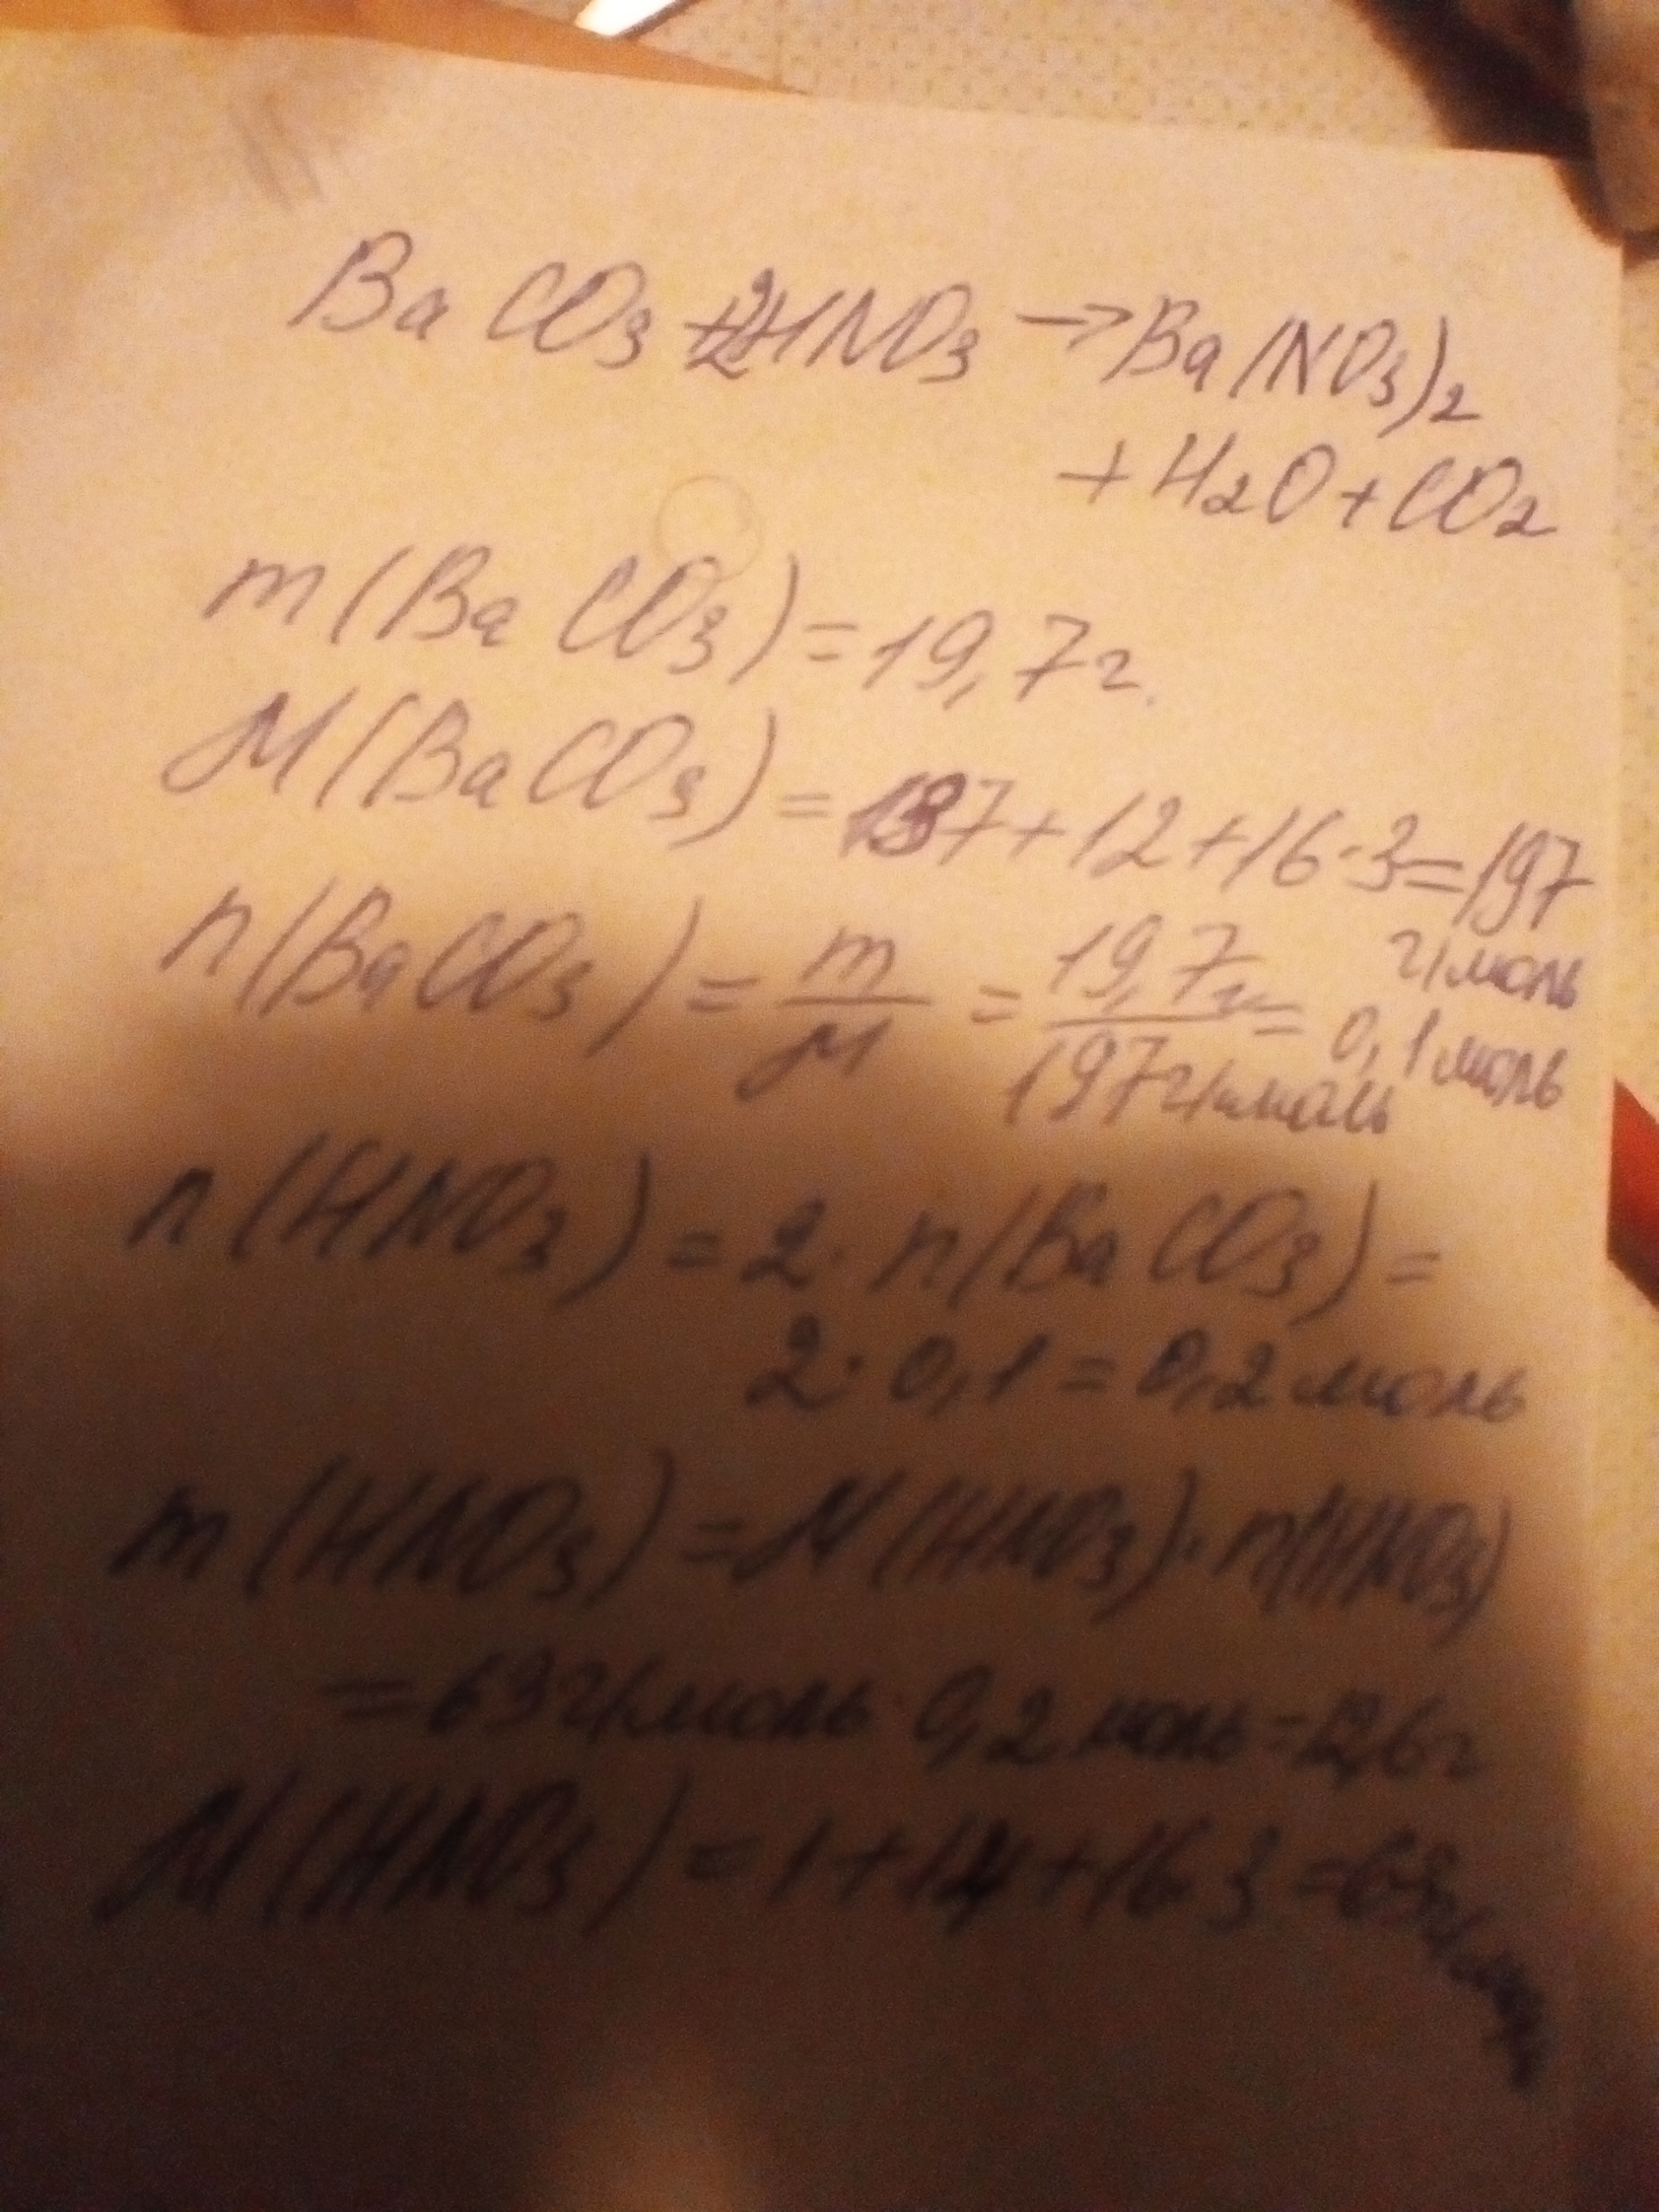 BaCO3 + 2HNO3 → Ba(NO3)2
+ H2O + CO2
m(BaCO3) = 19,7г.
M(BaCO3) = 137 + 12 + 16·3 = 197
г/моль
n(BaCO3) = m/M = 19,7г/197г/моль = 0,1 моль
n(HNO3) = 2 · n(BaCO3) =
2 · 0,1 = 0,2 моль
m(HNO3) = M(HNO3) · n(HNO3)
= 63г/моль · 0,2 моль = 12,6г
M(HNO3) = 1 + 14 + 16·3 = 63г/моль